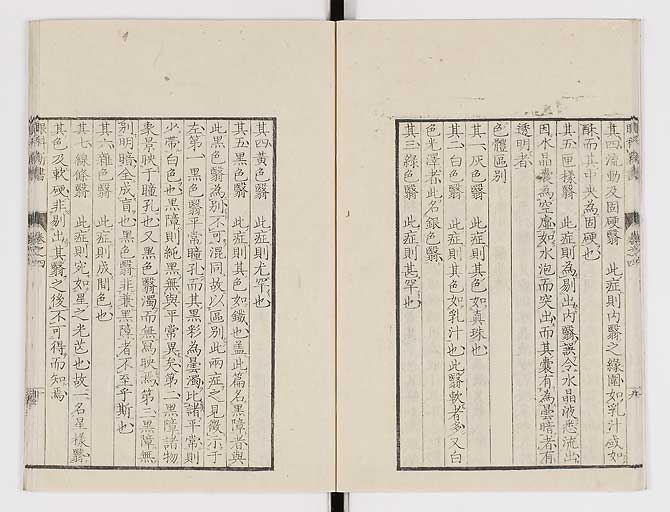 其四流動及固硬翳　此症則内翳之緣圍如乳汁或如
酥而其中央為固硬也
其五匣樣翳　此症則為剔出内翳誤令水晶液悉流出
因水晶囊為空虛如水泡而突出而其囊有為曇暗者有
透明者
色體區别
其一灰色翳　此症則其色如真珠也
其二白色翳　此症則其色如乳汁也此翳軟者多又白
色光澤者此名銀色翳
其三綠色翳　此症則甚罕也
其四黃色翳　此症則尤罕也
其五黑色翳　此症則其色如鐵也盖此篇名黑障者與
此黑色翳為别不可混同故以區别此兩症之見徵示于
左第一黑色翳平常瞳孔而其黑彩為曇濁比諸平常則
少帶白色也黑障則純黑無與平常異矣第二黑障諸物
象景映于瞳孔也又黑色翳濁而無為映焉第三黑障無
别明暗全成盲也黑色翳非兼黑障者不至乎斯也
其六雜色翳　此症則成間色也
其七線條翳　此症則宛如星之光芒也故一名星樣翳
其色及軟硬非剔出其翳之後不可得而知焉
眼科新書　卷之四